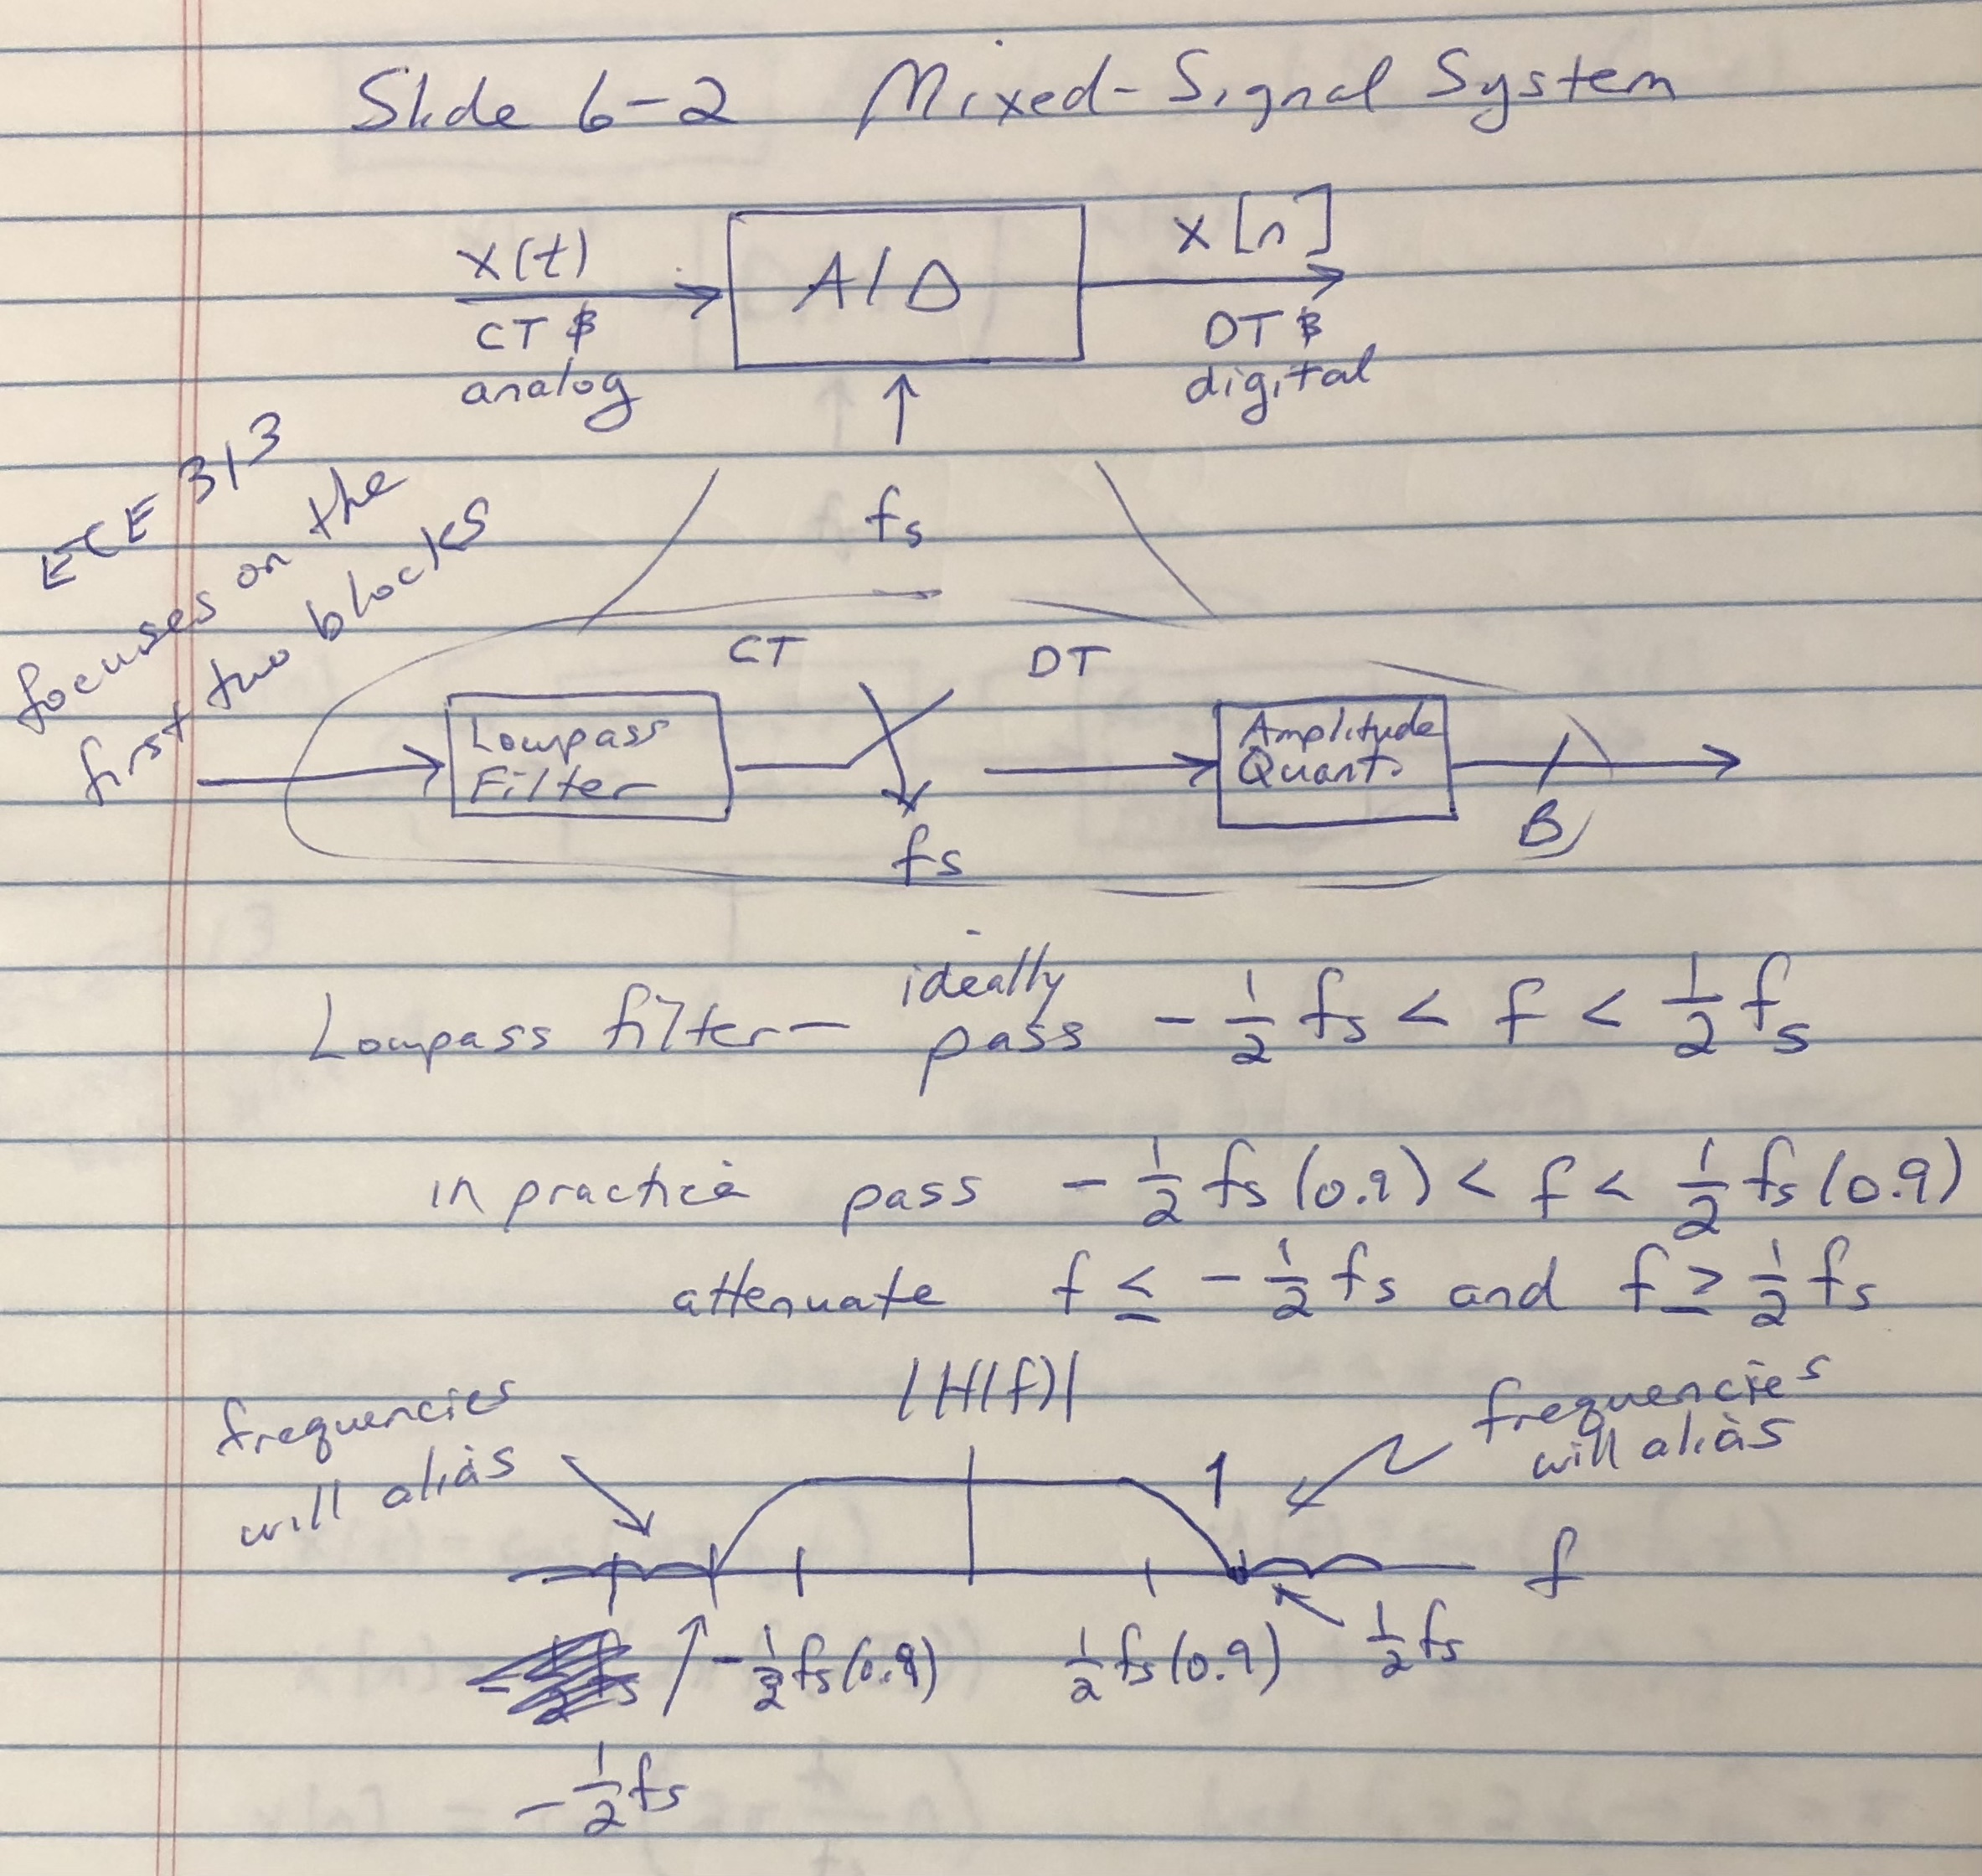 Slide 6-2 Mixed-Signal System
x(t) A/D x[n]
CT & DT &
analog digital
fs
ECE 313
focuses on the
first two blocks
CT DT
Lowpass Amplitude
Filter Quant.
fs B
ideally
Lowpass filter — pass -1/2 fs < f < 1/2 fs
in practice pass -1/2 fs (0.9) < f < 1/2 fs (0.9)
attenuate f ≤ -1/2 fs and f ≥ 1/2 fs
|H(f)|
frequencies
will alias
frequencies
will alias
1
f
-1/2 fs (0.9) 1/2 fs (0.9) 1/2 fs
-1/2 fs